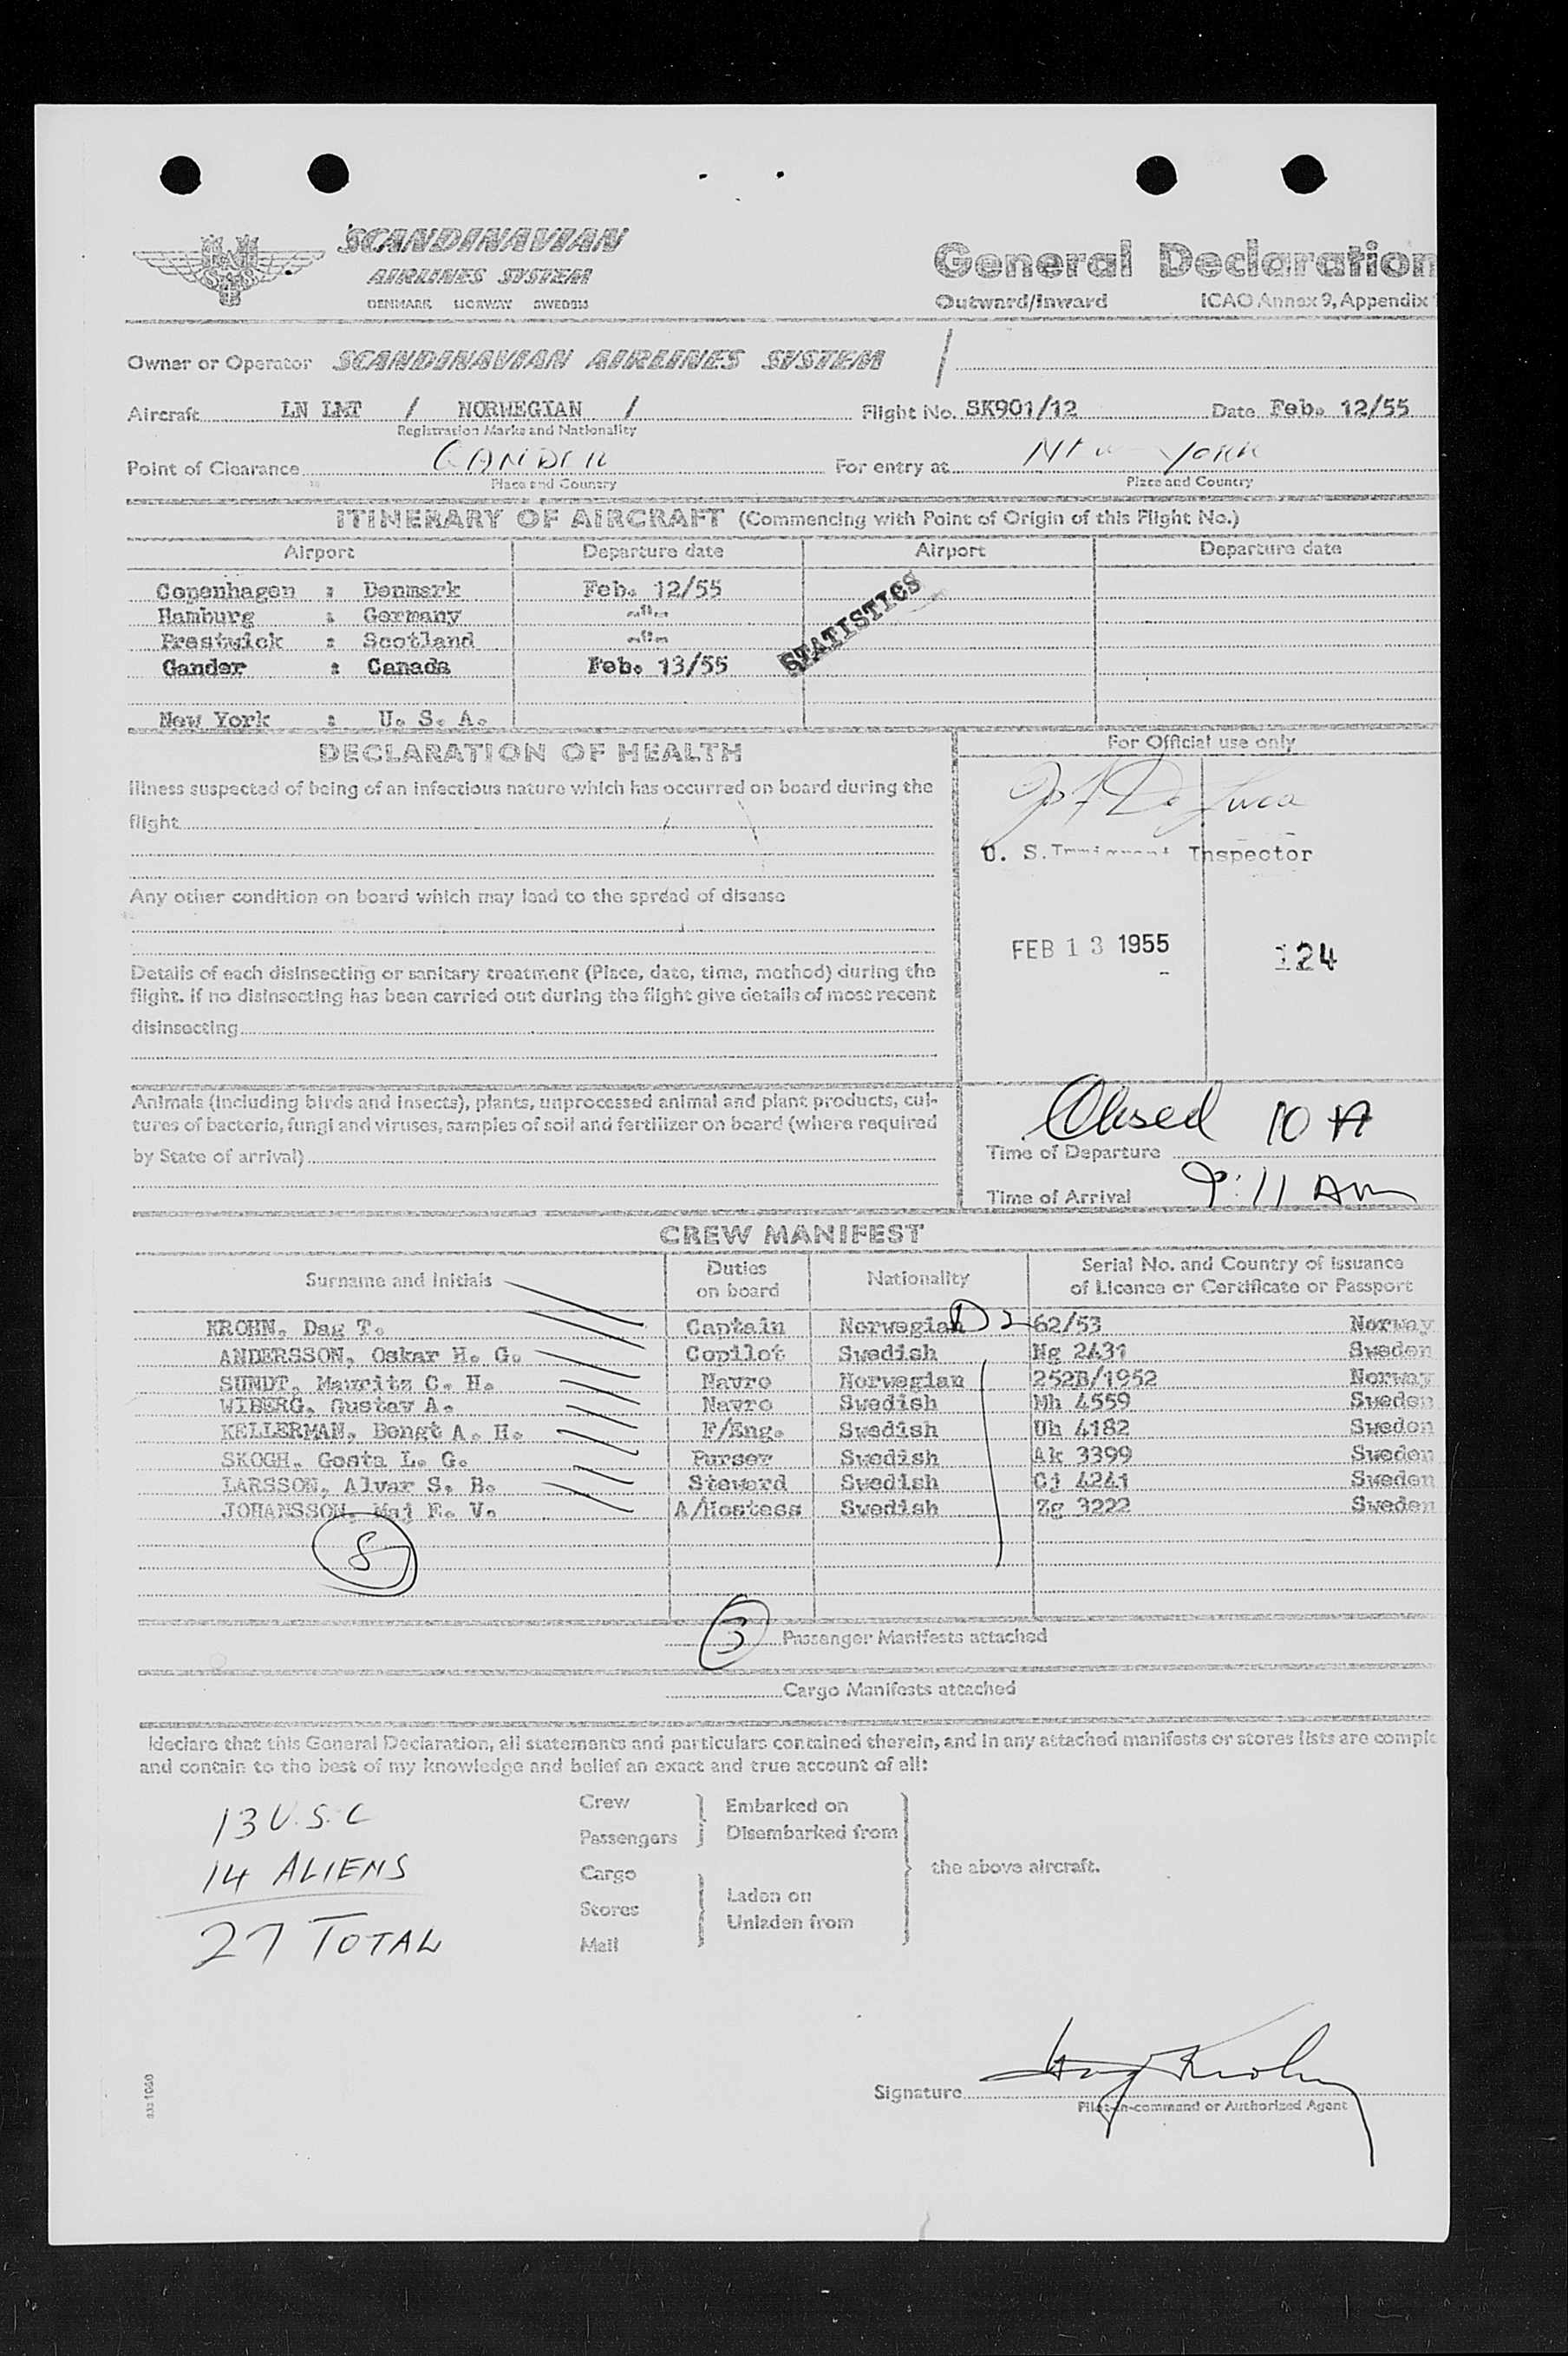 SCANDINAVIAN
AIRLINES SYSTEM
DENMARK NORWAY SWEDEN
General Declaration
Outward/Inward ICAO Annex 9, Appendix
Owner or Operator SCANDINAVIAN AIRLINES SYSTEM /
Aircraft LN LMT / NORWEGIAN / Flight No. SK901/12 Date Feb. 12/55
Registration Marks and Nationality
Point of Clearance GANDER For entry at New York
Place and Country Place and Country
ITINERARY OF AIRCRAFT (Commencing with Point of Origin of this Flight No.)
Airport Departure date Airport Departure date
Copenhagen : Denmark Feb. 12/55
Hamburg : Germany -"-
Prestwick : Scotland -"-
Gander : Canada Feb. 13/55
STATISTICS
New York : U. S. A.
DECLARATION OF HEALTH
Illness suspected of being of an infectious nature which has occurred on board during the
flight
Any other condition on board which may lead to the spread of disease
Details of each disinsecting or sanitary treatment (Place, date, time, method) during the
flight. If no disinsecting has been carried out during the flight give details of most recent
disinsecting
Animals (including birds and insects), plants, unprocessed animal and plant products, cul-
tures of bacteria, fungi and viruses, samples of soil and fertilizer on board (where required
by State of arrival)
For Official use only
De Luca
U. S. Immigrant Inspector
FEB 13 1955 124
Closed 10 A
Time of Departure
Time of Arrival 9:11 AM
CREW MANIFEST
Surname and Initials Duties on board Nationality Serial No. and Country of Issuance of Licence or Certificate or Passport
KROHN, Dag T. Captain Norwegian D2 62/53 Norway
ANDERSSON, Oskar H. G. Copilot Swedish Ng 2431 Sweden
SUNDT, Mauritz C. H. Navro Norwegian 252B/1952 Norway
WIBERG, Gustav A. Navro Swedish Mh 4559 Sweden
KELLERMAN, Bengt A. H. F/Eng. Swedish Uh 4182 Sweden
SKOGH, Gosta L. G. Purser Swedish Ak 3399 Sweden
LARSSON, Alvar S. B. Steward Swedish Cj 4241 Sweden
JOHANSSON, Maj E. V. A/Hostess Swedish Zg 3222 Sweden
8
3 Passenger Manifests attached
Cargo Manifests attached
I declare that this General Declaration, all statements and particulars contained therein, and in any attached manifests or stores lists are comple
and contain to the best of my knowledge and belief an exact and true account of all:
13 U.S.C
14 ALIENS
27 TOTAL
Crew
Passengers
Cargo
Stores
Mail
Embarked on
Disembarked from
Laden on
Unladen from
the above aircraft.
Signature Dag Krohn
Pilot-in-command or Authorized Agent